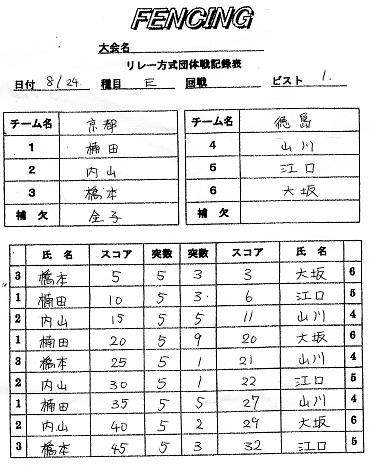 FENCING
大会名
リレー方式団体戦記録表
日付 8/24 種目 E 回戦 ピスト 1.
チーム名 京都 チーム名 徳島
1 楠田 4 山川
2 内山 5 江口
3 橋本 6 大坂
補欠 金子 補欠
氏名 スコア 突数 突数 スコア 氏名
3 橋本 5 5 3 3 大坂 6
1 楠田 10 5 3 6 江口 5
2 内山 15 5 5 11 山川 4
1 楠田 20 5 9 20 大坂 6
3 橋本 25 5 1 21 山川 4
2 内山 30 5 1 22 江口 5
1 楠田 35 5 5 27 山川 4
2 内山 40 5 2 29 大坂 6
3 橋本 45 5 3 32 江口 5